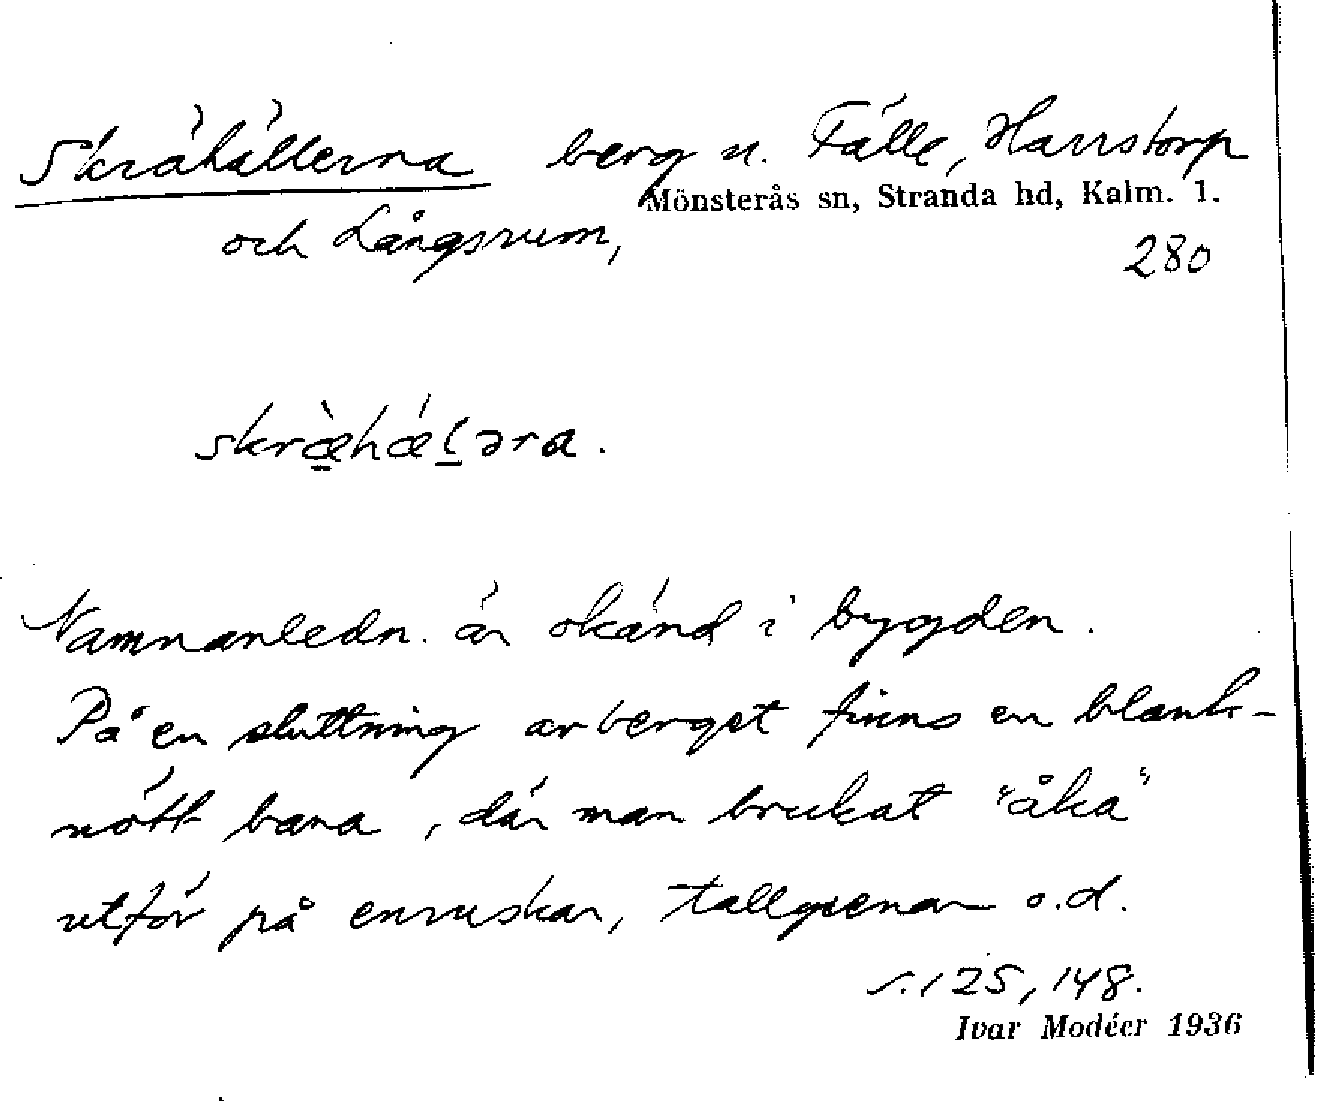 Skrähällerna berg u. Fälle, Harrstorp
Mönsterås sn, Stranda hd, Kalm. l.
och Långsrum,
280
Namnanledn. är okänd i bygden.
På en sluttning av berget finns en blank-
nött bana, där man brukat "åka"
utför på enruskar, tallgrenar o.d.
s. 125, 148.
Ivar Modéer 1936